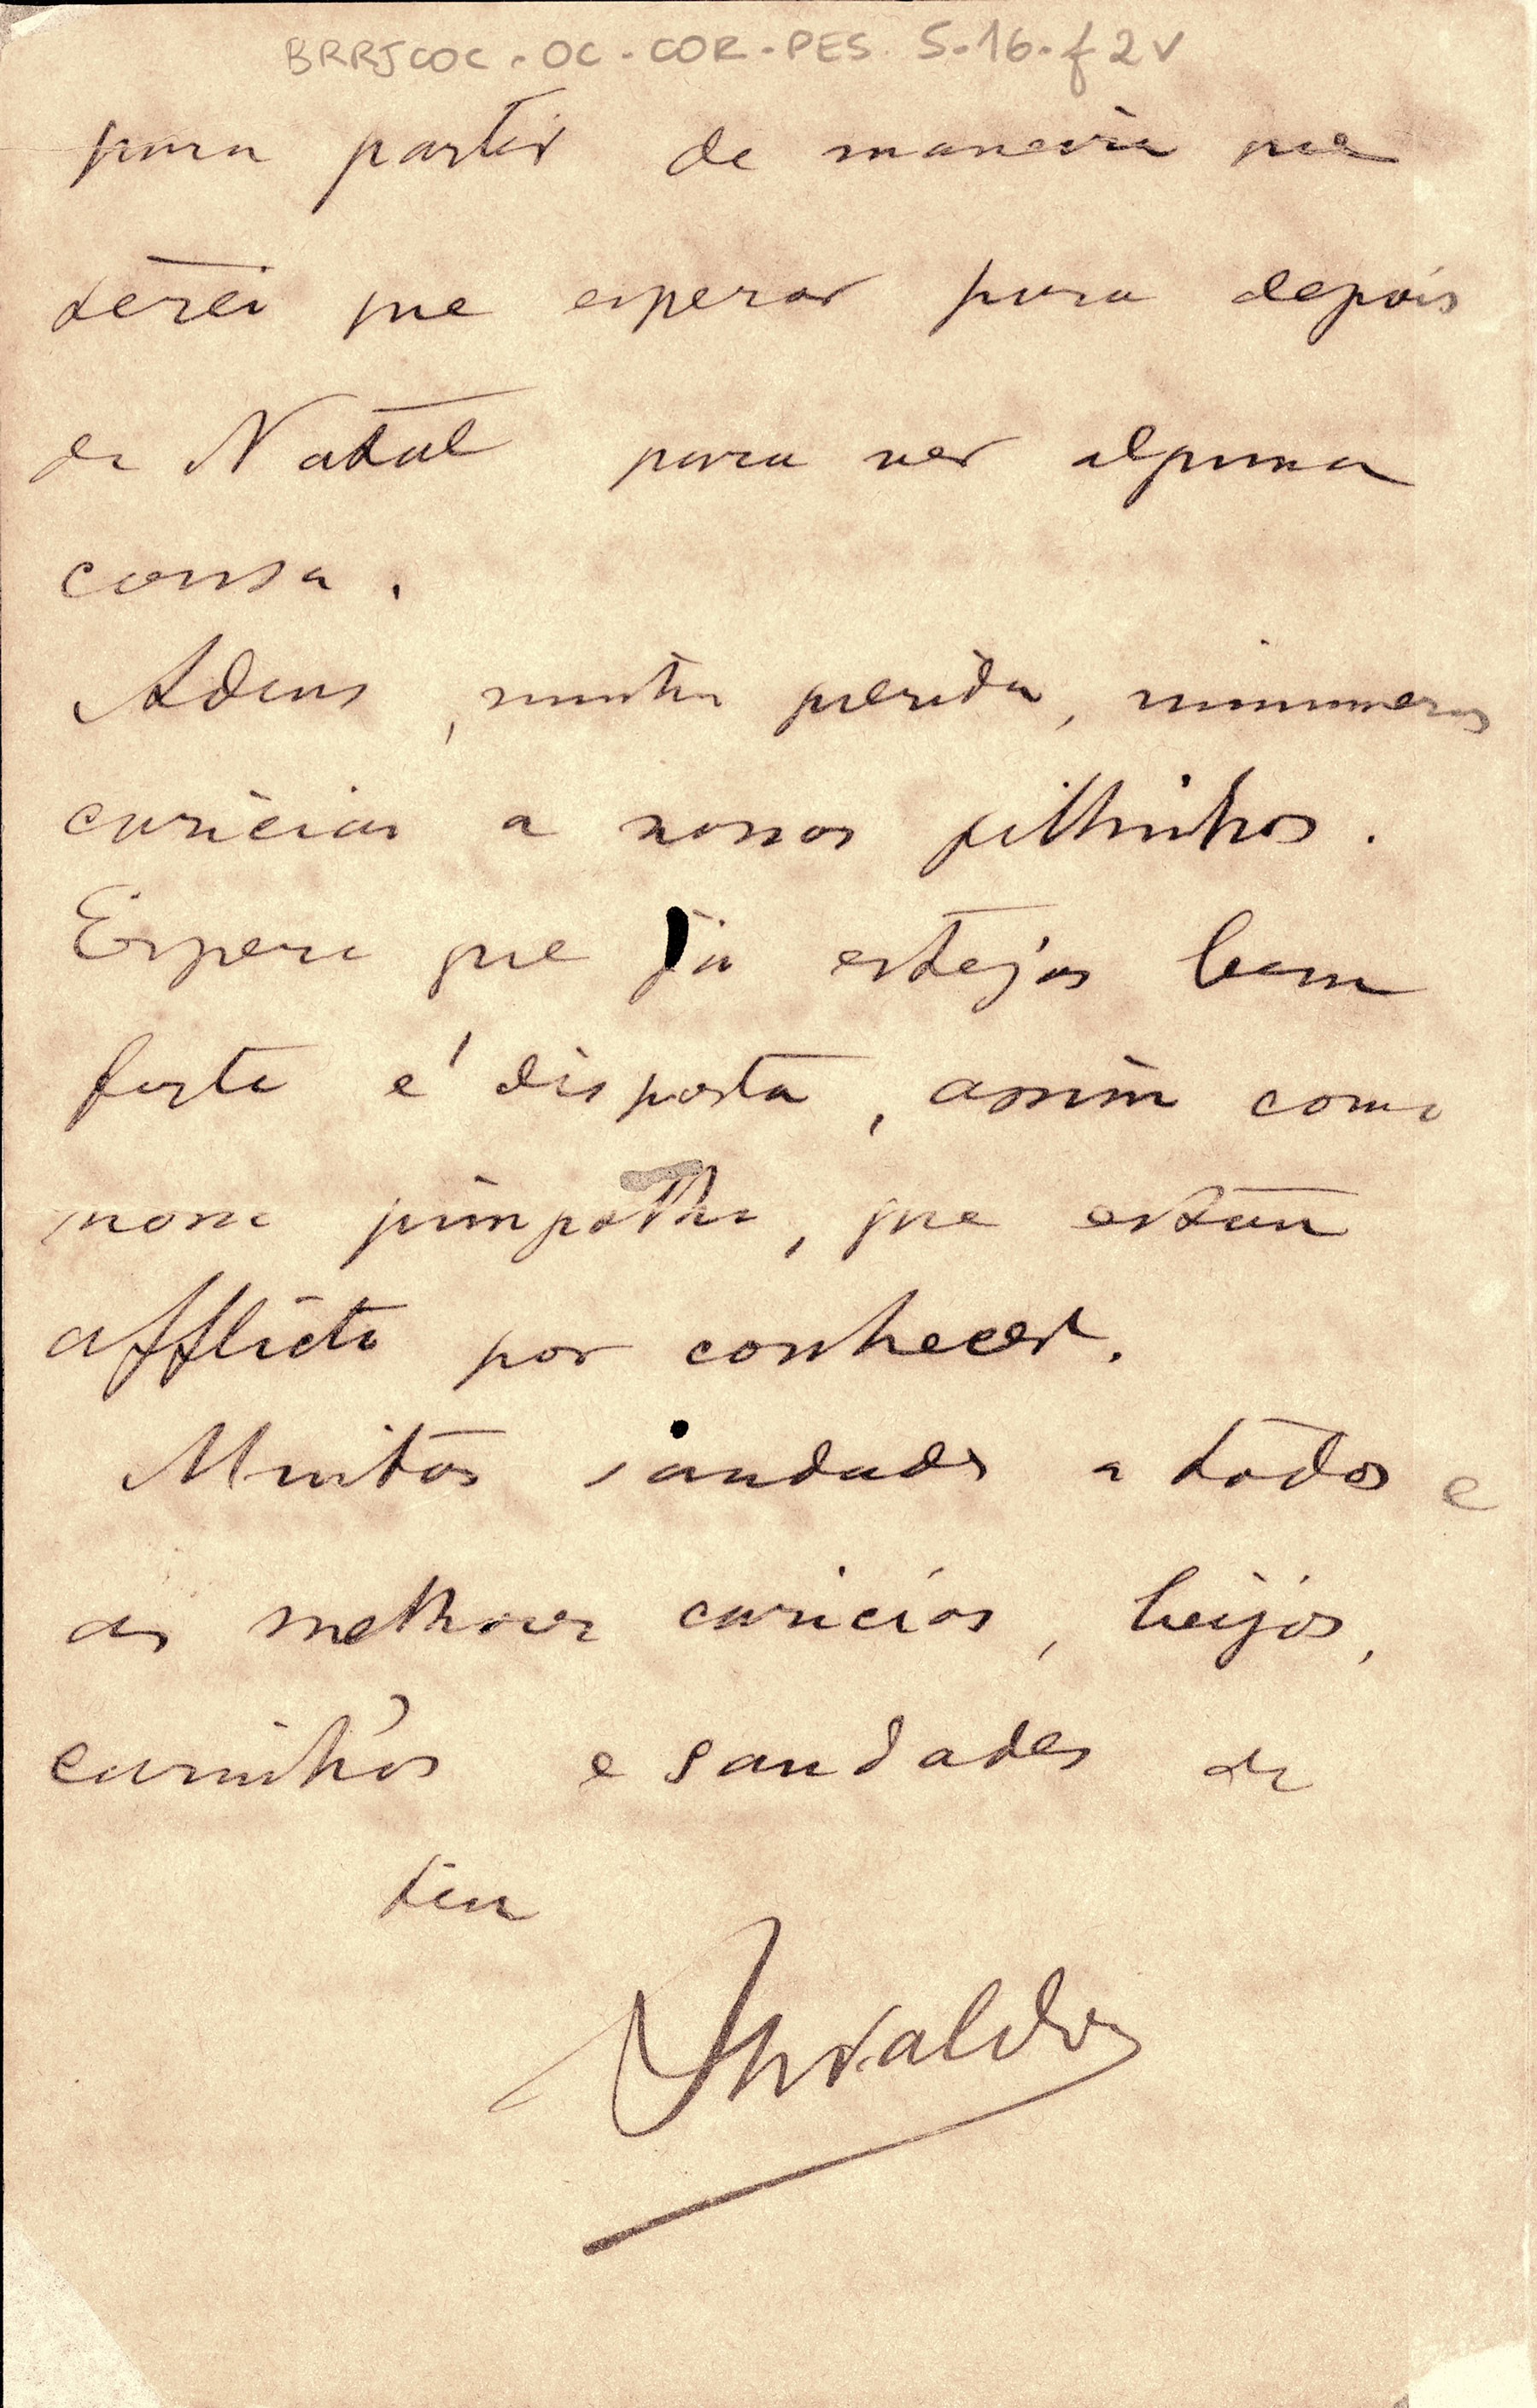 BRRJCOC. OC. COR. PES. 5.16. f 2v
para partir de maneira que
terei que esperar para depois
de Natal para ver alguma
cousa.
Adeus, minha querida, innumeras
caricias a nossos filhinhos.
Espero que já estejas bem
forte e disposta, assim como
nosso pimpolho, que estou
afflicto por conhecer.
Muitas saudades a todos e
as melhores caricias, beijos,
carinhos e saudades de
teu
Oswaldo